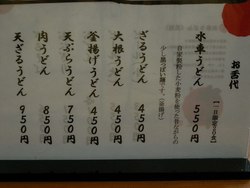 お品代
水車うどん 550円
【一日限定20食】
自家製粉した小麦粉を使った昔ながらの
少し黒っぽい麺です。（釜揚げ）
ざるうどん 450円
大根うどん 450円
釜揚げうどん 450円
天ぷらうどん 750円
肉うどん 850円
天ざるうどん 950円